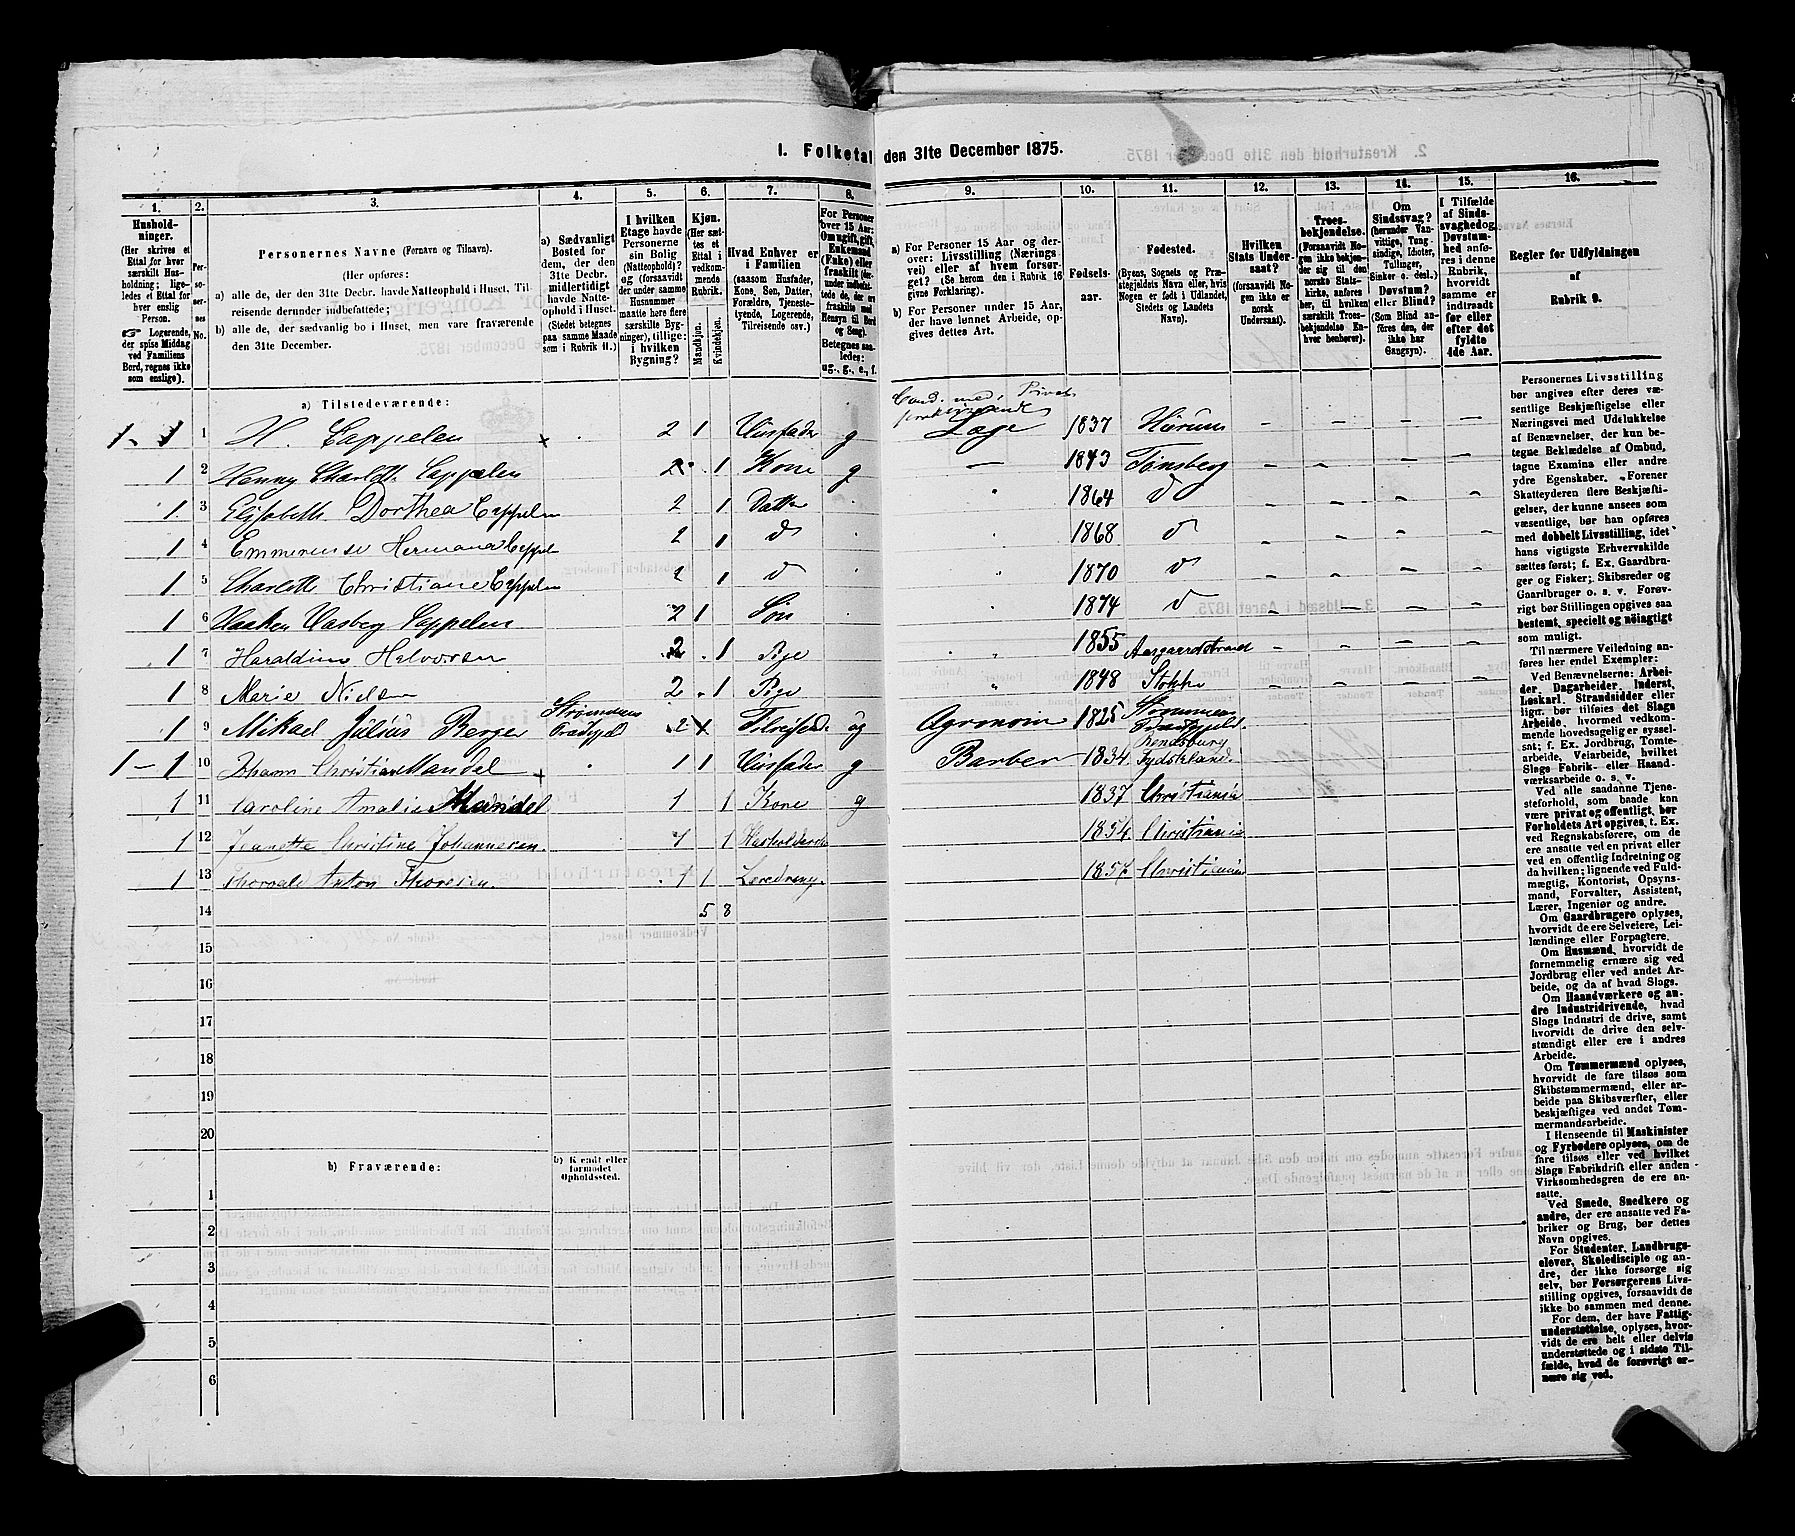 1. Folketal den 31te December 1875.
1. 2. 3. 4. 5. 6. 7. 8. 9. 10. 11. 12. 13. 14. 15. 16.
Hushold-
ninger.
(Her skrives et
Ettal for hver
særskilt Hus-
holdning; lige-
ledes et Ettal for
hver enslig
Person.
☞ Logerende,
der spise Middag
ved Familiens
Bord, regnes ikke
som enslige).
Per-
so-
ner-
nes
No.
Personernes Navne (Fornavn og Tilnavn).
(Her opføres:
a) alle de, der den 31te Decbr. havde Natteophold i Huset, Til-
reisende derunder indbefattede;
b) alle de, der sædvanlig bo i Huset, men vare fraværende
den 31te December.
a) Sædvanligt
Bosted for
dem, der den
31te Decbr.
midlertidigt
havde Natte-
ophold i Huset.
(Stedet betegnes
paa samme Maade
som i Rubrik 11.)
I hvilken
Etage havde
Personerne
sin Bolig
(Natteophold)?
og (forsaavidt
der under samme
Husnummer
maatte høre flere
særskilte Byg-
ninger), tillige:
i hvilken
Bygning?
Kjøn.
(Her sæt-
tes et
Ettal i
vedkom-
mende
Rubrik.
Mandkjøn.
Kvindekjøn.
Hvad Enhver er
i Familien
(saasom Husfader,
Kone, Søn, Datter,
Forældre, Tjeneste-
tyende, Logerende,
Tilreisende osv.)
For Personer
over 15 Aar:
Om ugift, gift,
Enkemand
(Enke) eller
fraskilt (der-
under indbefat-
tede de, der ere
fraskilte med
Hensyn til Bord
og Seng).
Betegnes saa-
ledes:
ug., g., e., f.
a) For Personer 15 Aar og der-
over: Livsstilling (Nærings-
vei) eller af hvem forsør-
get? (Se herom den i Rubrik 16
givne Forklaring).
b) For Personer under 15 Aar,
der have lønnet Arbeide, op-
gives dettes Art.
Fødsels-
aar.
Fødested.
(Byens, Sognets og Præ-
stegjeldets Navn eller, hvis
Nogen er født i Udlandet,
Stedets og Landets
Navn).
Hvilken
Stats Under-
saat?
(forsaavidt No-
gen ikke er
norsk
Undersaat).
Troes-
bekjendelse.
(Forsaavidt No-
gen ikke bekjen-
der sig til den
norske Stats-
kirke, anføres
her, til hvilken
særskilt Troes-
bekjendelse En-
hver henhører).
Om
Sindssvag?
(herunder Van-
vittige, Tung-
sindige, Idioter,
Tullinger,
Sinker o. desl.)
Døvstum?
eller Blind?
(Som Blind an-
føres den, der
ikke har
Gangsyn).
I Tilfælde
af Sinds-
svaghed og
Døvstum-
hed anfø-
res i denne
Rubrik,
hvorvidt
samme er
indtraadt
før eller
efter det
fyldte
4de Aar.
Regler for Udfyldningen
af
Rubrik 9.
a) Tilstedeværende:
1 - 1 1 H. Cappelen 2 1 Husfader g Cand. med., Privat praktiserende Læge 1837 Hurum
1 2 Henny Charlotte Cappelen 2 1 Kone g 1843 Tønsberg
1 3 Elisabeth Dorthea Cappelen 2 1 Datter 1864 d
1 4 Emmerense Hermana Cappelen 2 1 d 1868 d
1 5 Charlotte Christiane Cappelen 2 1 d 1870 d
1 6 Haaken Cappelen 2 1 Søn 1874 d
1 7 Haraldine Halvorsen 2 1 Pige 1855 Aasgaardstrand
1 8 Marie Nielsen 2 1 Pige 1848 Stokke
1 9 Mikael Julius Berger 2 Tilreisende ug Agronom 1825
1 - 1 10 Johann Christian Mandel 1 1 Husfader g Barber 1834 Rendsburg Tydskland.
1 11 Caroline Amalie Mandel 1 1 Kone g 1837 Christiania
1 12 Jeanette Christine Johannesen 1 1 1854 Christiania
1 13 Thorvald Anton Thoresen 1 1 Leredreng. 1857 Christiania
14 5 8
15
16
17
18
19
20
b) Fraværende:
b) Kjendt eller
formodet
Opholdssted.
1
2
3
4
5
6
Personernes Livsstilling
bør angives efter deres væ-
sentlige Beskjæftigelse eller
Næringsvei med Udelukkelse
af Benævnelser, der kun be-
tegne Beklædelse af Ombud,
tagne Examina eller andre
ydre Egenskaber. Forener
Skatteyderen flere Beskjæfti-
gelser, der kunne ansees som
væsentlige, bør han opføres
med dobbelt Livsstilling, idet
hans vigtigste Erhvervskilde
sættes først; f. Ex. Gaardbru-
ger og Fisker; Skibsreder og
Gaardbruger o. s. v. Forøv-
rigt bør Stillingen opgives saa
bestemt, specielt og nøiagtigt
som muligt.
Til nærmere Veiledning an-
føres her endel Exempler:
Ved Benævnelserne: Arbei-
der, Dagarbeider, Inderst,
Løskarl, Strandsidder eller
lign. bør tilføies det Slags
Arbeide, hvormed vedkom-
mende hovedsagelig er syssel-
sat; f. Ex. Jordbrug, Tomte-
arbeide, Veiarbeide, hvilket
Slags Fabrik- eller Haand-
værksarbeide o. s. v.
Ved alle saadanne Tjene-
steforhold, som baade kan
være privat og offentligt, bør
Forholdets Art opgives, t. Ex.
ved Regnskabsførere, om de
ere ansatte ved en privat eller
ved en offentlig Indretning og
da hvilken; lignende ved Fuld-
mægtig, Kontorist, Opsyns-
mand, Forvalter, Assistent,
Lærer, Ingeniør og andre.
Om Gaardbrugere oplyses,
hvorvidt de ere Selveiere, Lei-
lændinge eller Forpagtere.
Om Husmænd, hvorvidt de
fornemmelig ernære sig ved
Jordbrug eller ved andet Ar-
beide, og da af hvad Slags.
Om Haandværkere og an-
dre Industridrivende, hvad
Slags Industri de drive, samt
hvorvidt de drive den selv-
stændigt eller ere i andres
Arbeide.
Om Tømmermænd oplyses,
hvorvidt de fare tilsøs som
Skibstømmermænd, eller ar-
beide paa Skibsværfter, eller
beskjæftiges ved andet Tøm-
mermandsarbeide.
I Henseende til Maskinister
og Fyrbødere oplyses, om de
fare tilsøs eller ved hvilket
Slags Fabrikdrift eller anden
Virksomhedsgren de ere an-
satte.
Ved Smede, Snedkere og
andre, der ere ansatte ved Fa-
briker og Brug, bør dettes
Navn opgives.
For Studenter, Landbrugs-
elever, Skoledisciple og an-
dre, der ikke forsørge sig
selv, bør Forsørgerens Livs-
stilling opgives, forsaavidt de
ikke bo sammen med denne.
For dem, der have Fattig-
understøttelse, oplyses, hvor-
vidt de ere helt eller delvis
understøttede og i sidste Til-
fælde, hvad de forøvrigt er-
nære sig ved.